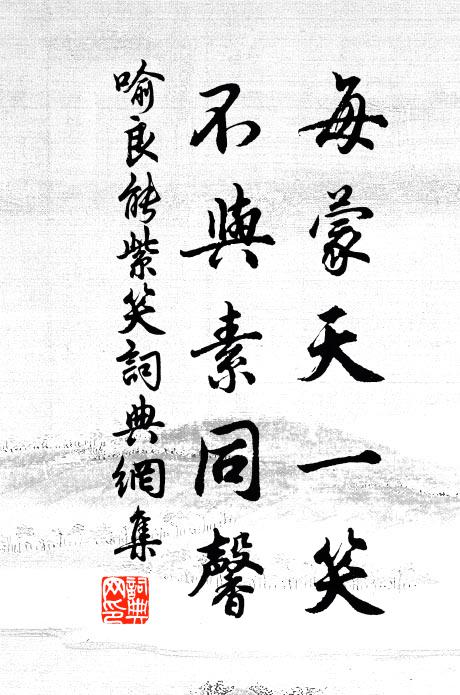 每蒙天一笑
不與素同馨
喻良能紫笑詞典網集
詞典網印